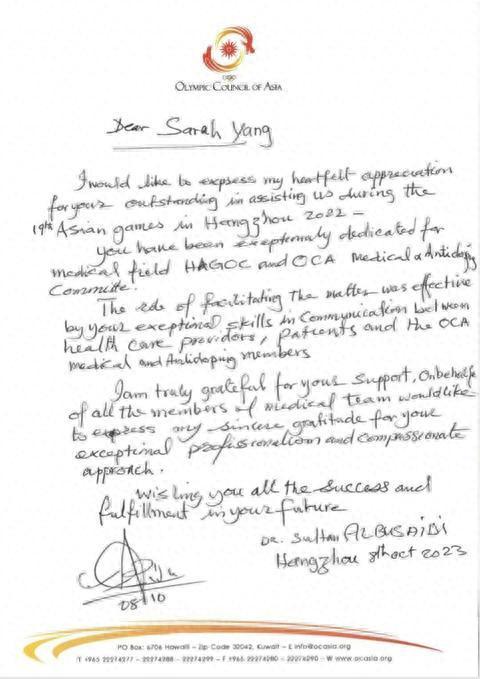 OLYMPIC COUNCIL OF ASIA
Dear Sarah Yang
I would like to express my heartfelt appreciation
for your outstanding in assisting us during the
19th Asian games in Hangzhou 2022 –
you have been exceptionaly dedicated for
medical field HAGOC and OCA Medical & Antidoping
Committe.
The role of facilitating the matter was effective
by your exceptional skills in Communication between
health care providers, patients and the OCA
medical and Antidoping members
I am truly grateful for your support, On behalf
of all the members of medical team would like
to express my sincere gratitude for your
exceptional professionalism and compassionate
approach.
wishing you all the success and
fulfillment in your future
Dr. Sultan ALBUSAIDI
Hangzhou 8th oct 2023
08/10
PO Box: 6706 Hawalli – Zip Code 32042, Kuwait – E info@ocasia.org
T +965 22274277 – 22274288 – 22274299 – F +965 22274280 – 22274290 – W www.ocasia.org